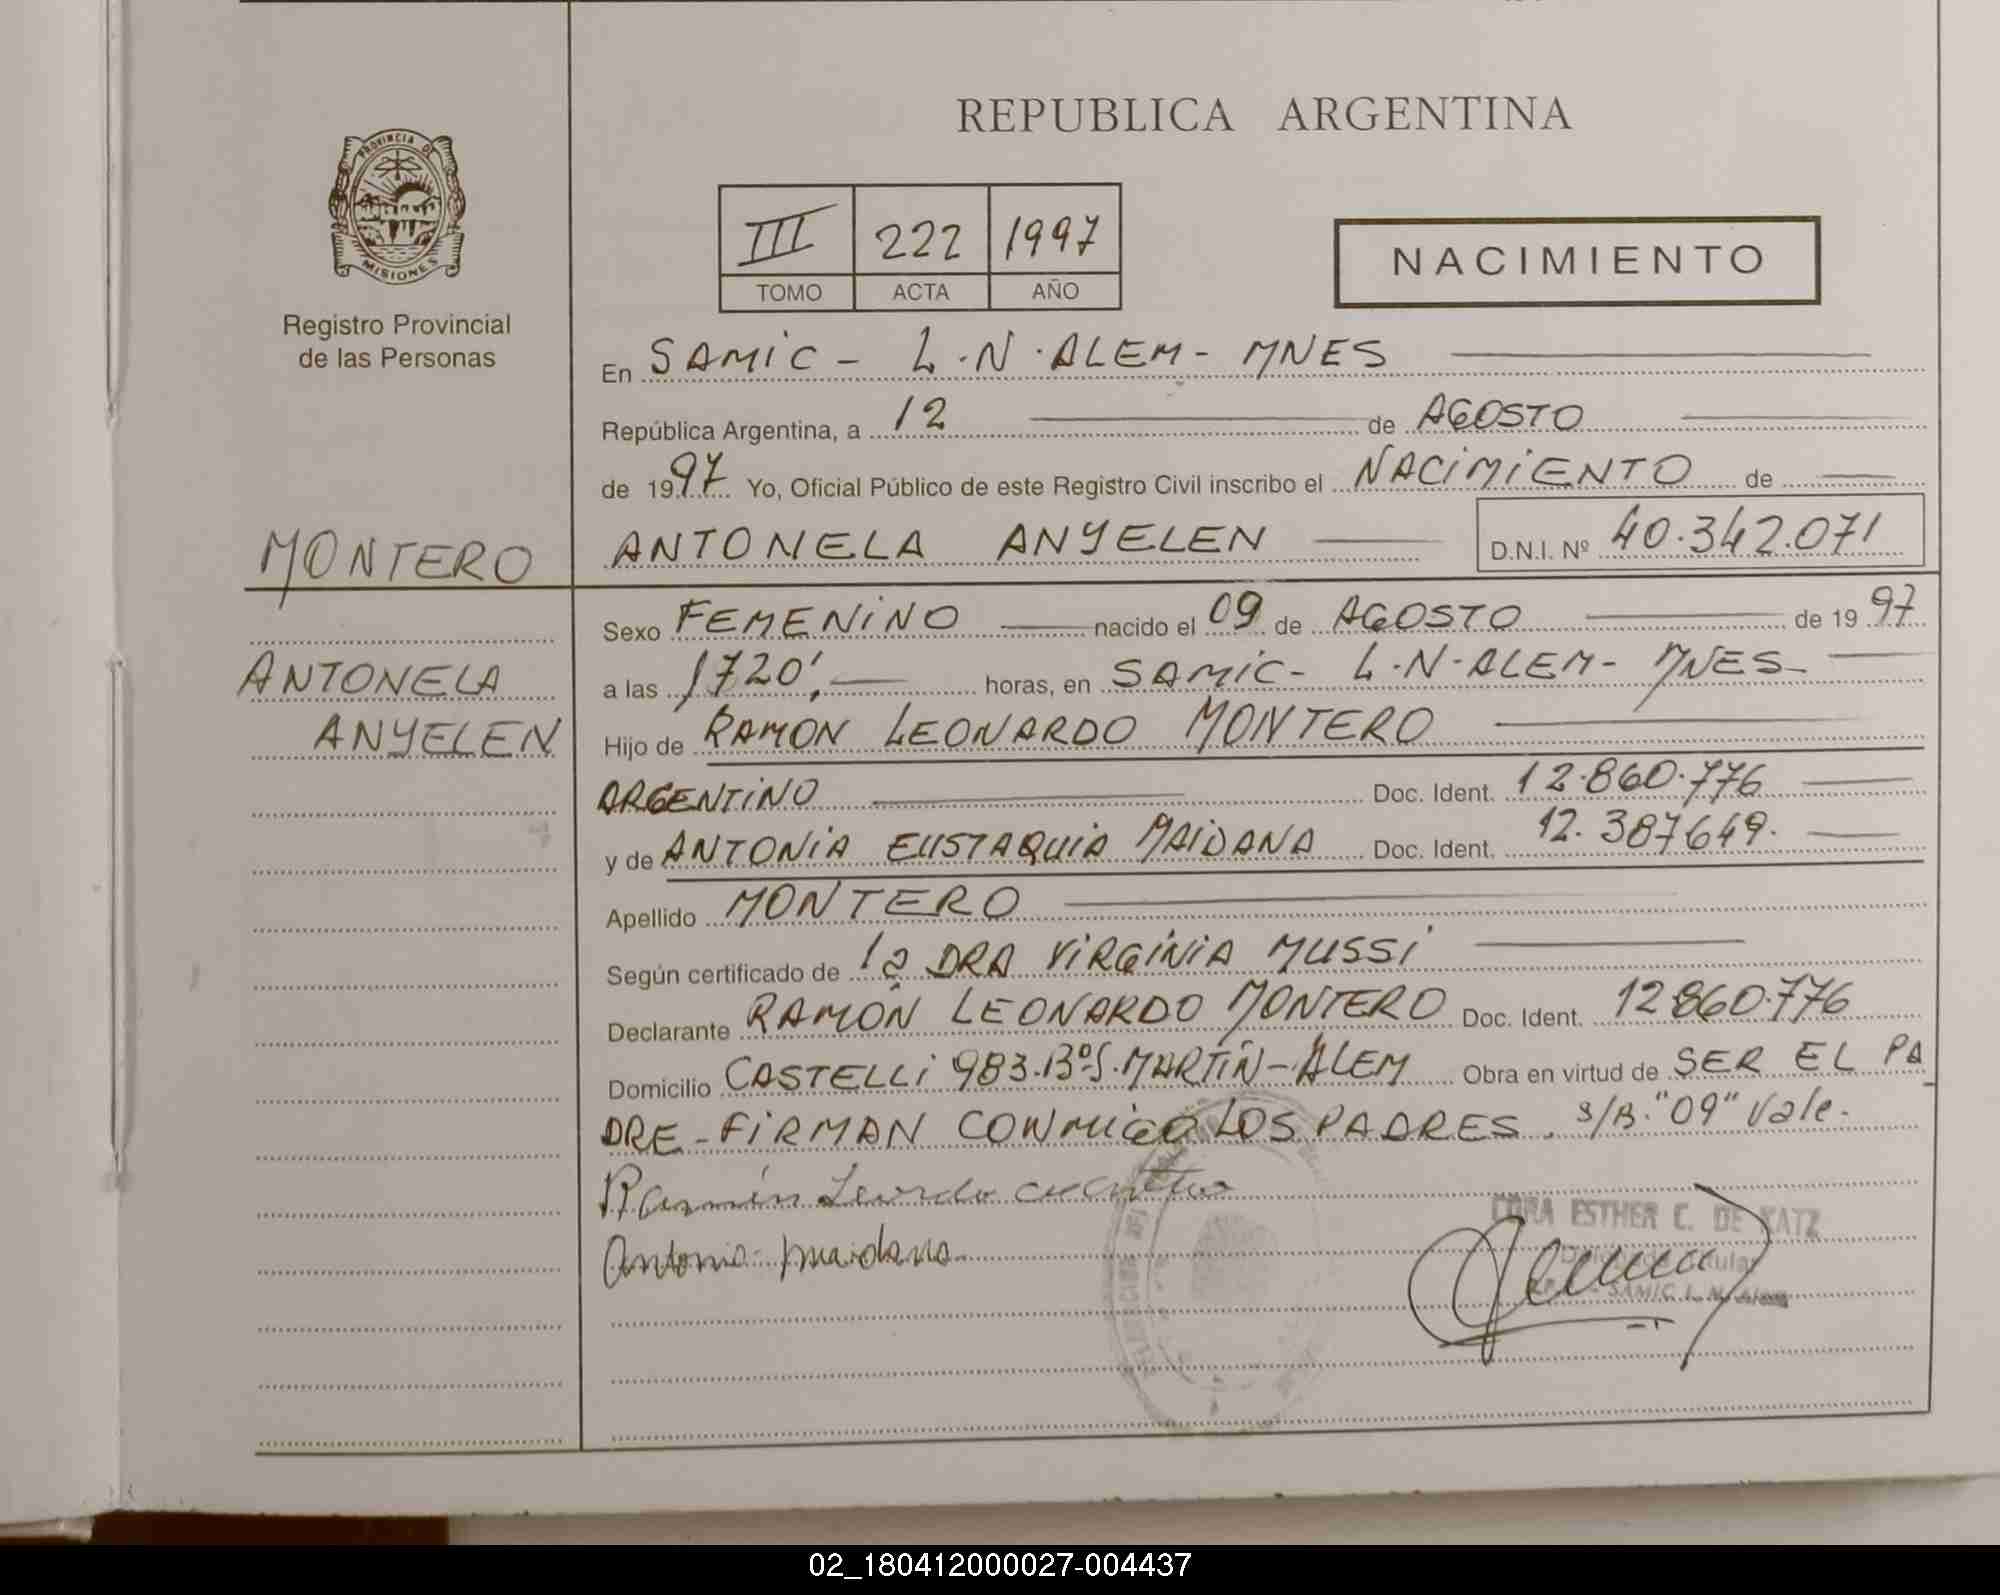 REPUBLICA ARGENTINA
PROVINCIA DE
MISIONES
Registro Provincial
de las Personas
III 222 1997
TOMO ACTA AÑO
NACIMIENTO
En SAMIC - L.N.ALEM - MNES
República Argentina, a 12 de AGOSTO
de 1997 Yo, Oficial Público de este Registro Civil inscribo el NACIMIENTO de
ANTONELA ANYELEN D.N.I. Nº 40.342.071
MONTERO
ANTONELA
ANYELEN
Sexo FEMENINO nacido el 09 de AGOSTO de 1997
a las 1720', horas, en SAMIC - L.N.ALEM - MNES-
Hijo de RAMON LEONARDO MONTERO
ARGENTINO Doc. Ident. 12.860.776
y de ANTONIA EUSTAQUIA MAIDANA Doc. Ident. 12.387649.
Apellido MONTERO
Según certificado de la DRA VIRGINIA MUSSI
Declarante RAMÓN LEONARDO MONTERO Doc. Ident. 12860.776
Domicilio CASTELLI 983.Bº S.MARTÍN-ALEM Obra en virtud de SER EL PA
DRE - FIRMAN CONMIGO LOS PADRES. S/B. "09" Vale.
Ramón
Antonia maidana
ESTHER C. DE KATZ
SAMIC L. N. Alem
02_180412000027-004437